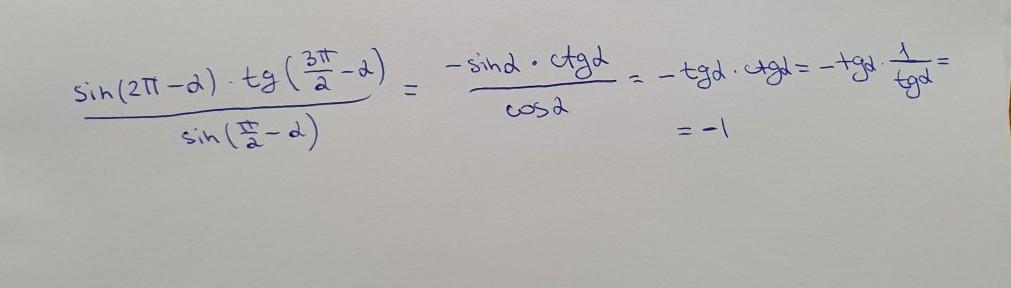 sin(2π-α) · tg(3π/2 - α) / sin(π/2 - α) = -sinα · ctgα / cosα = -tgα · ctgα = -tgα · 1/tgα =
= -1